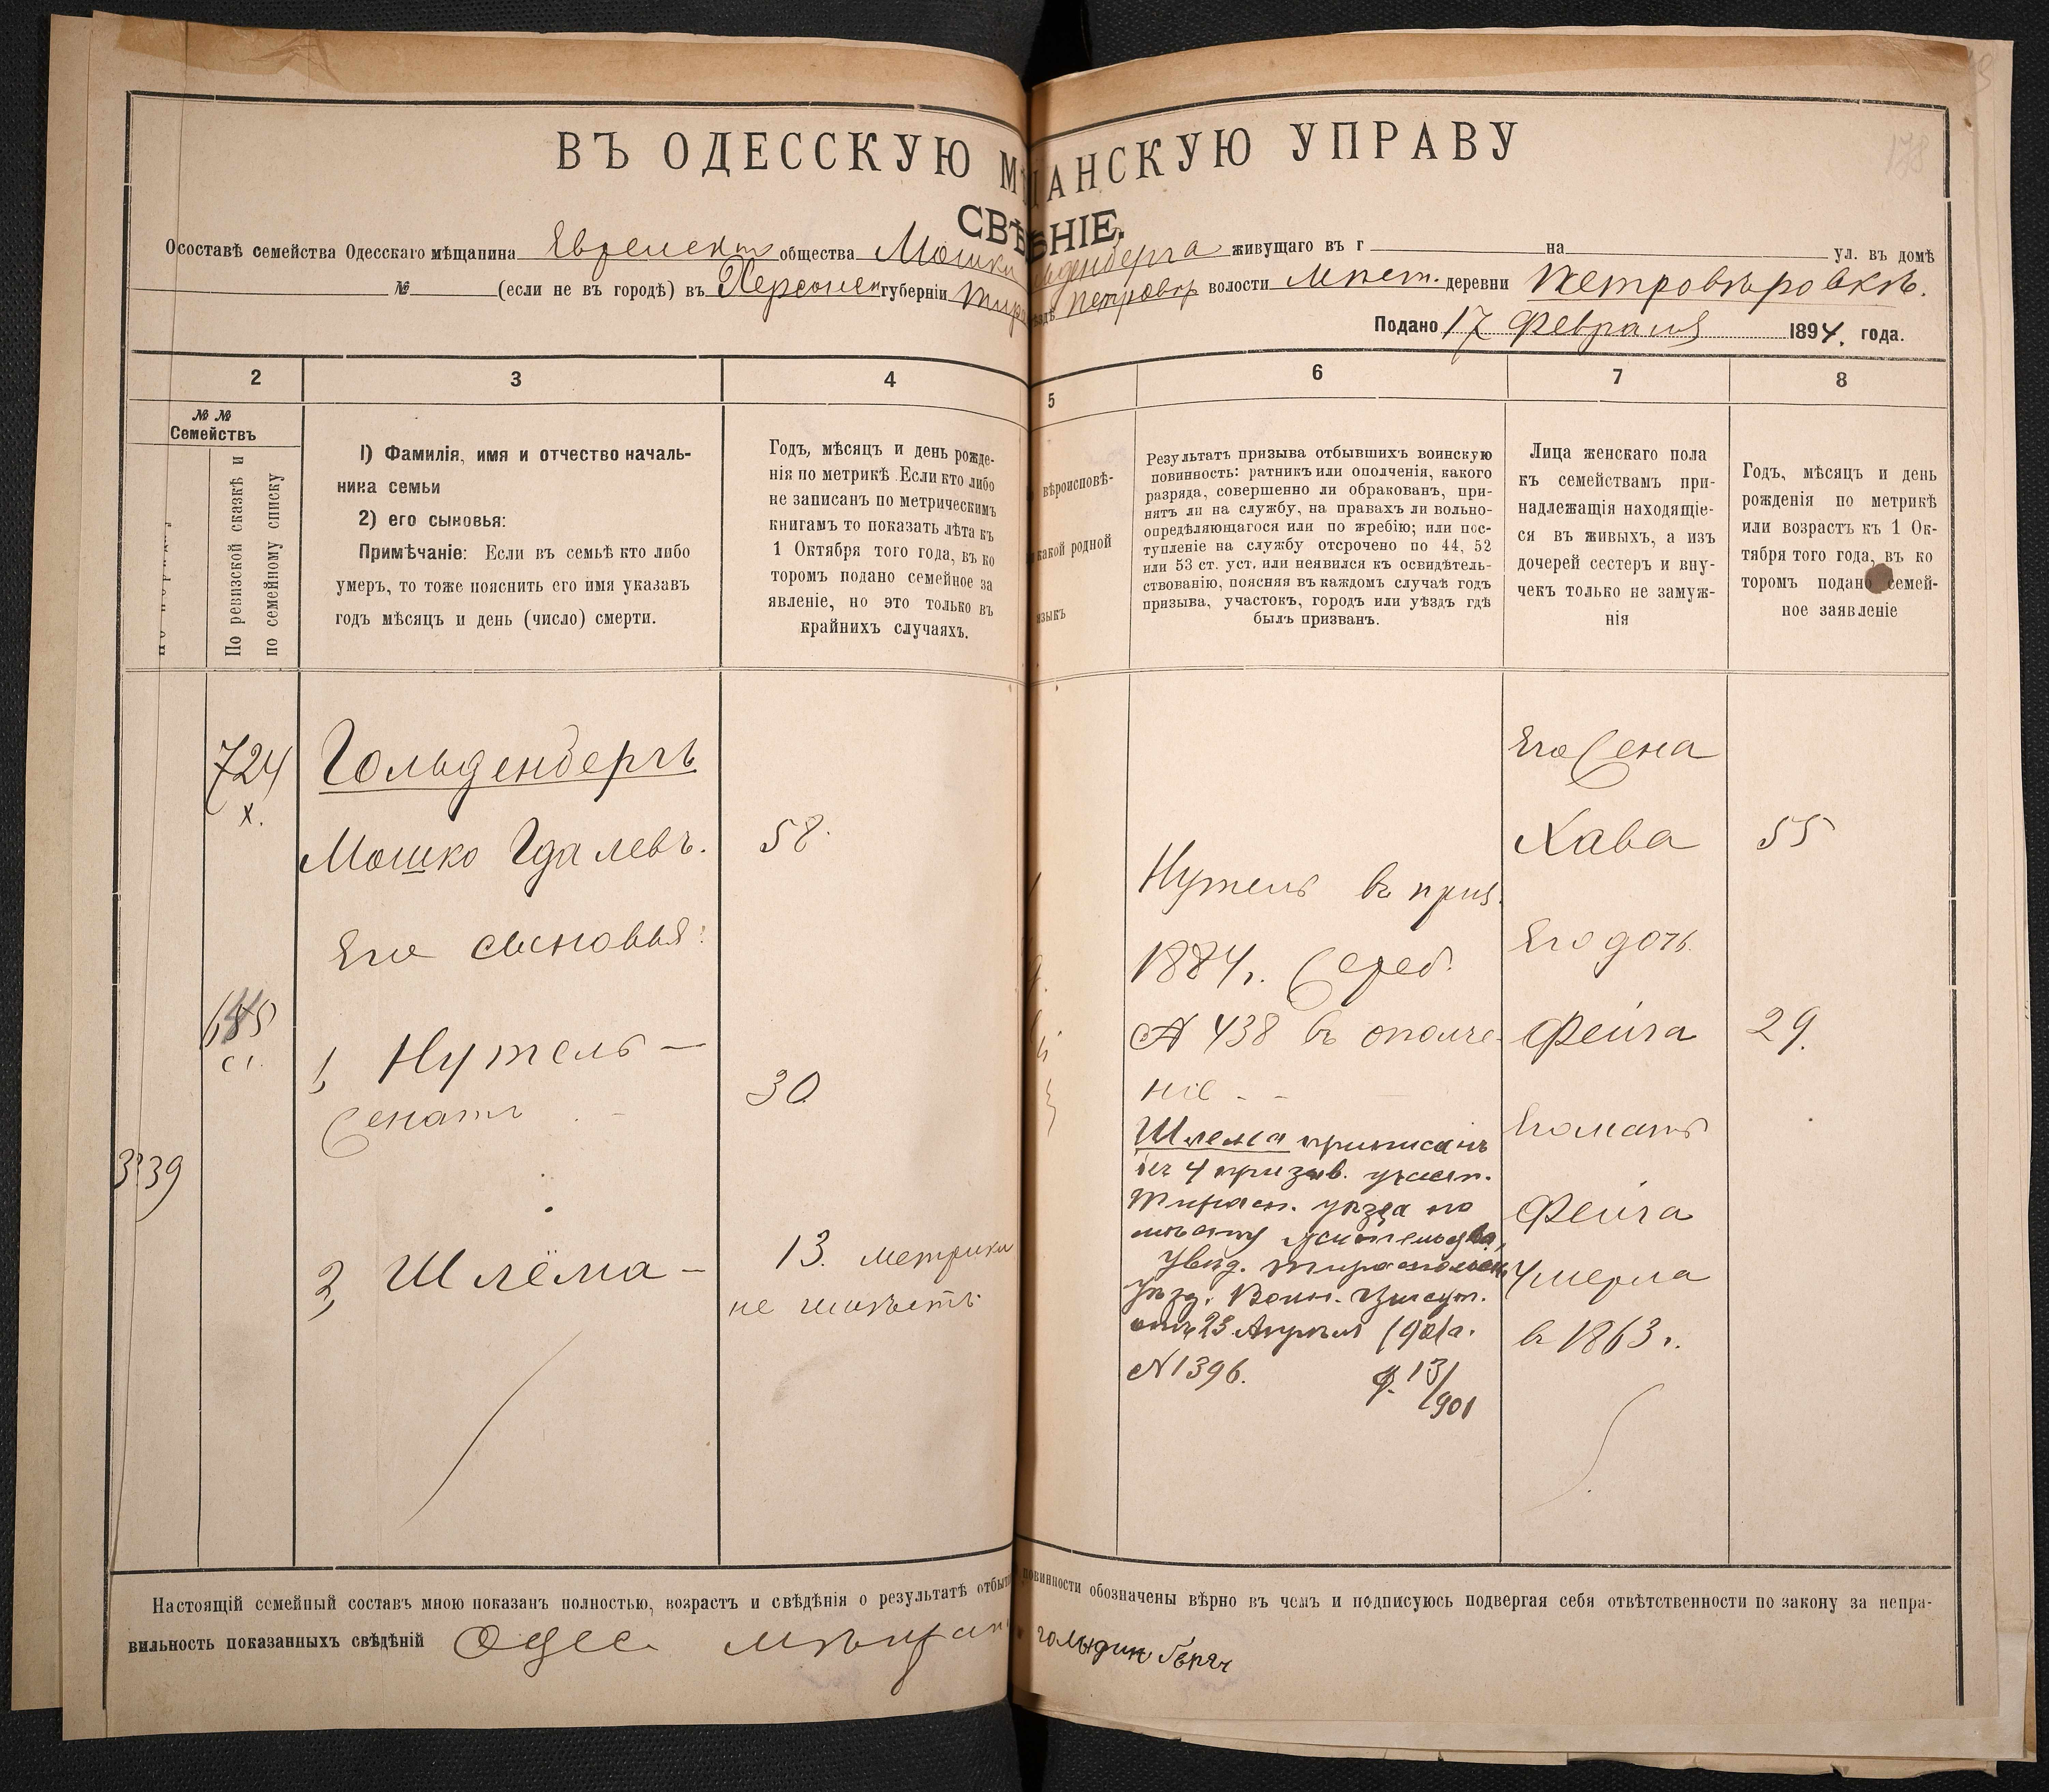 ВЪ ОДЕССКУЮ М АНСКУЮ УПРАВУ
СВѢ НІЕ.
О составѣ семейства Одесскаго мѣщанина Еврейск. общества Мошки льденберга живущаго въ г на ул. въ домѣ
№ (если не въ городѣ) въ Херсонск губерніи Тир здѣ Петровѣр волости Мѣст. деревни Петровѣровкѣ.
Подано 17 Февраля 1894. года.
2 3 4 5 6 7 8
№ №
Семействъ
По ревизской сказкѣ и
по семейному списку
1) Фамилія, имя и отчество началь-
ника семьи
2) его сыновья:
Примѣчаніе: Если въ семьѣ кто либо
умеръ, то тоже пояснить его имя указавъ
годъ мѣсяцъ и день (число) смерти.
Годъ, мѣсяцъ и день рожде-
нія по метрикѣ Если кто либо
не записанъ по метрическимъ
книгамъ то показать лѣта къ
1 Октября того года, въ ко
торомъ подано семейное за
явленіе, но это только въ
крайнихъ случаяхъ.
вѣроисповѣ-
какой родной
языкъ
Результатъ призыва отбывшихъ воинскую
повинность: ратникъ или ополченія, какого
разряда, совершенно ли обракованъ, при-
нятъ ли на службу, на правахъ ли вольно-
опредѣляющагося или по жребію; или пос-
тупленіе на службу отсрочено по 44, 52
или 53 ст. уст. или неявился къ освидѣтель-
ствованію, поясняя въ каждомъ случаѣ годъ
призыва, участокъ, городъ или уѣздъ гдѣ
былъ призванъ.
Лица женскаго пола
къ семействамъ при-
надлежащія находящіе-
ся въ живыхъ, а изъ
дочерей сестеръ и вну-
чекъ только не замуж-
нія
Годъ, мѣсяцъ и день
рожденія по метрикѣ
или возрастъ къ 1 Ок-
тября того года, въ ко
торомъ подано семей-
ное заявленіе
724
х.
3339
Гольденбергъ
Мошко Гдалевъ.
58
Его сыновья:
1, Нутель —
женатъ
30
2, Шлёма —
13. метрики
не имѣетъ
Нутель въ приз.
1884 г. жереб.
№ 438 въ ополче-
ніе - -
Шлема приписанъ
къ 4 призыв. участ.
Тирасп. уѣзда по
мѣсту жительства,
Увѣд. Тираспольск.
Уѣзд. Воин. Присут.
отъ 23 Апрѣля 1901 г.
№ 1396.
13/901
Его жена
Хава
55
Его дочь
Фейга
29.
Его мать
Фейга
Умерла
въ 1863 г.
Настоящій семейный составъ мною показанъ полностью, возрастъ и свѣдѣнія о результатѣ отбыт повинности обозначены вѣрно въ чемъ и подписуюсь подвергая себя отвѣтственности по закону за непра-
вильность показанныхъ свѣдѣній Одес. мѣщан голъдин берг
178